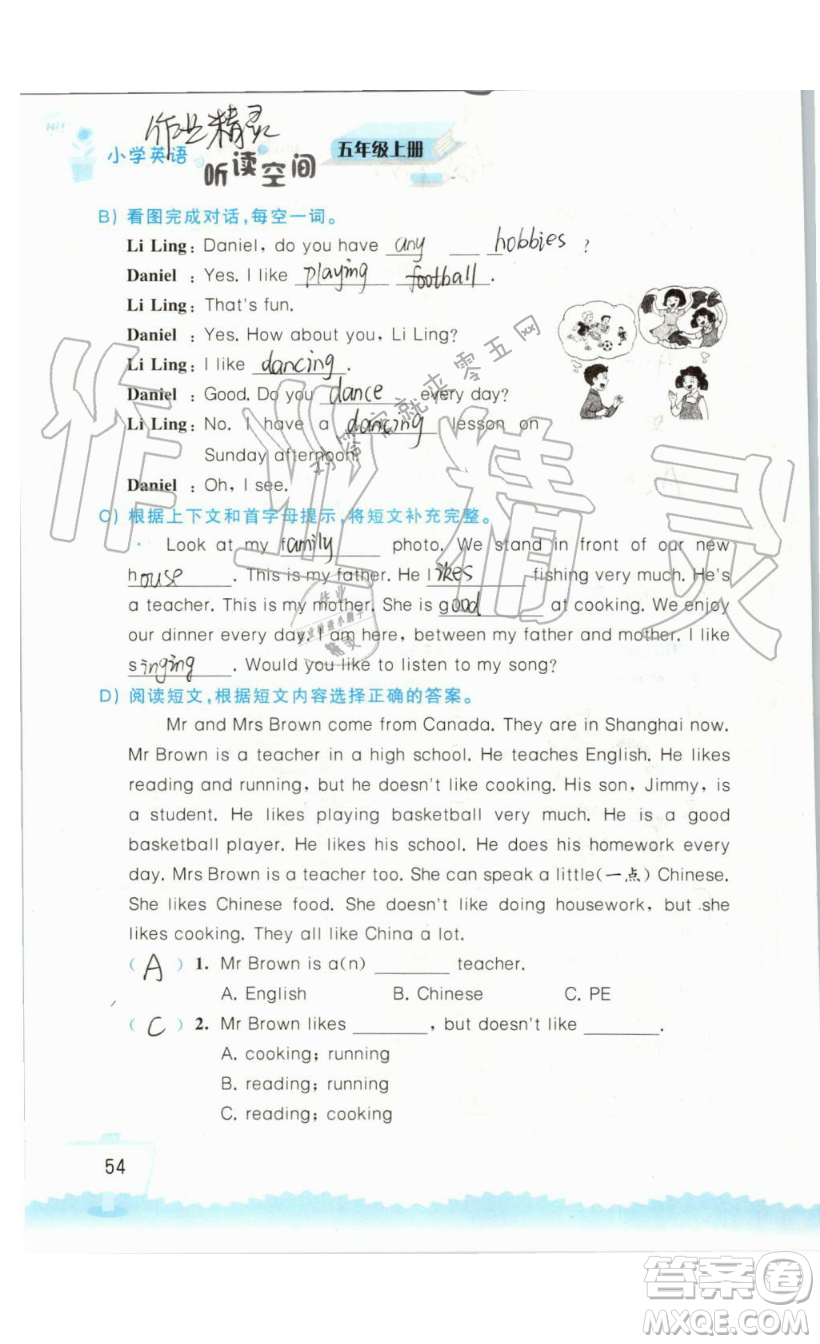 Hi!
作业精灵
小学英语
听读空间
五年级上册
B) 看图完成对话,每空一词。
Li Ling: Daniel, do you have any hobbies ?
Daniel : Yes. I like playing football.
Li Ling: That's fun.
Daniel : Yes. How about you, Li Ling?
Li Ling: I like dancing.
Daniel : Good. Do you dance every day?
Li Ling: No. I have a dancing lesson on
Sunday afternoon.
Daniel : Oh, I see.
C) 根据上下文和首字母提示,将短文补充完整。
Look at my family photo. We stand in front of our new
house. This is my father. He likes fishing very much. He's
a teacher. This is my mother. She is good at cooking. We enjoy
our dinner every day. I am here, between my father and mother. I like
singing. Would you like to listen to my song?
D) 阅读短文,根据短文内容选择正确的答案。
Mr and Mrs Brown come from Canada. They are in Shanghai now.
Mr Brown is a teacher in a high school. He teaches English. He likes
reading and running, but he doesn't like cooking. His son, Jimmy, is
a student. He likes playing basketball very much. He is a good
basketball player. He likes his school. He does his homework every
day. Mrs Brown is a teacher too. She can speak a little(一点) Chinese.
She likes Chinese food. She doesn't like doing housework, but she
likes cooking. They all like China a lot.
( A ) 1. Mr Brown is a(n) ________ teacher.
A. English B. Chinese C. PE
( C ) 2. Mr Brown likes ________, but doesn't like ________.
A. cooking; running
B. reading; running
C. reading; cooking
54
作业精灵
找答案就来零五网
答案卷
MXQE.COM